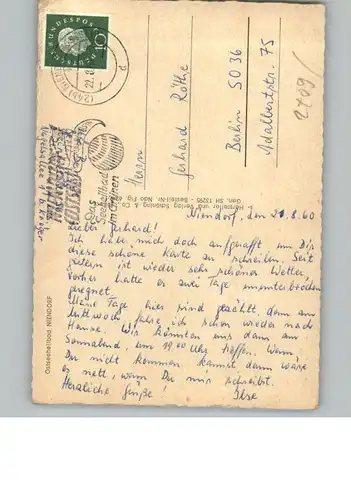 DEUTSCHE BUNDESPOST
10
(24b) NIENDORF
Das
Seeheilbad
im Grünen
Herrn
Gerhard Röthe
Berlin SO 36
Adalbertstr. 75
2709/
Hersteller und Verlag Schöning & Co.
Ostseeheilbad NIENDORF
Niendorf, den 21.8.60
Lieber Gerhard!
Ich habe mich doch aufgerafft um Dir
diese schöne Karte zu schreiben. Seit
gestern ist wieder sehr schönes Wetter,
vorher hatte es zwei Tage ununterbrochen
geregnet.
Meine Tage hier sind gezählt, denn am
Mittwoch fahre ich schon wieder nach
Hause. Wir könnten uns dann am
Sonnabend, um 19.00 Uhr treffen. Wenn
Du nicht kommen kannst, dann wäre
es nett, wenn Du mir schreibst.
Herzliche Grüße! Ilse